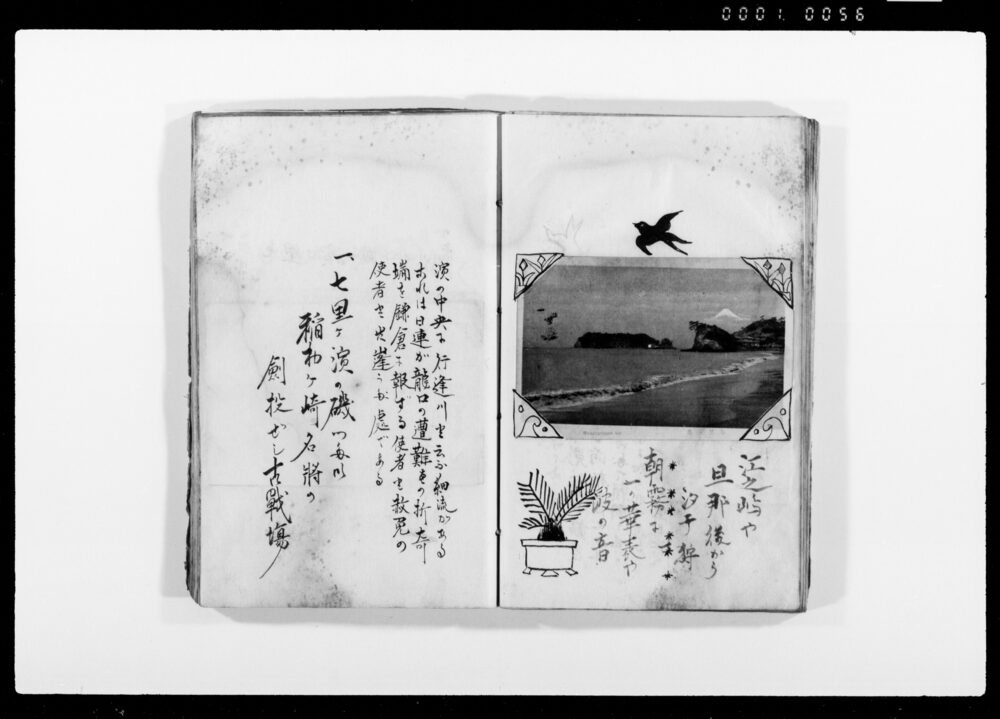 0001. 0056
江之嶋や
旦那後から
汐干狩
朝霧に
一の華表や
波の音
濱の中央に行逢川と云ふ細流がある
これは日連が龍口の遭難との折奇
瑞を鎌倉に報ずる使者と救免の
使者とが逢った處である
一、七里ヶ濱の磯
稲村ヶ崎名将の
剣投ぜし古戦場